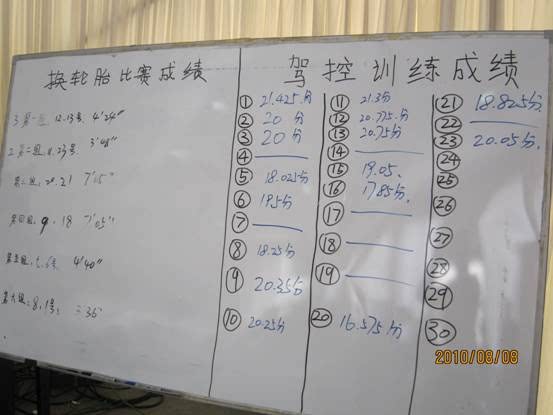 换轮胎比赛成绩
3 第一组 12.13号 4'24"
2 第二组 11.23号 3'48"
第三组 20.21 7'05"
第四组 9.18 7'05"
第五组 5.6号 4'40"
第六组 8.1号 3'36"
驾控训练成绩
① 21.425分
② 20分
③ 20分
④
⑤ 18.025分
⑥ 19.5分
⑦
⑧ 18.25分
⑨ 20.35分
⑩ 20.25分
⑪ 21.3分
⑫ 20.775分
⑬ 20.75分
⑭
⑮ 19.05.
⑯ 17.85分.
⑰
⑱
⑲
⑳ 16.575分
㉑ 18.825分
㉒
㉓ 20.05分.
㉔
㉕
㉖
㉗
㉘
㉙
㉚
2010/08/08